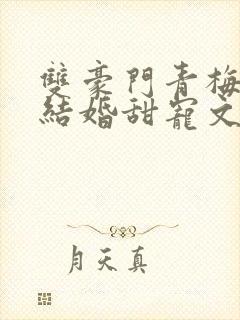 雙豪門青梅
結婚甜寵文
月天真